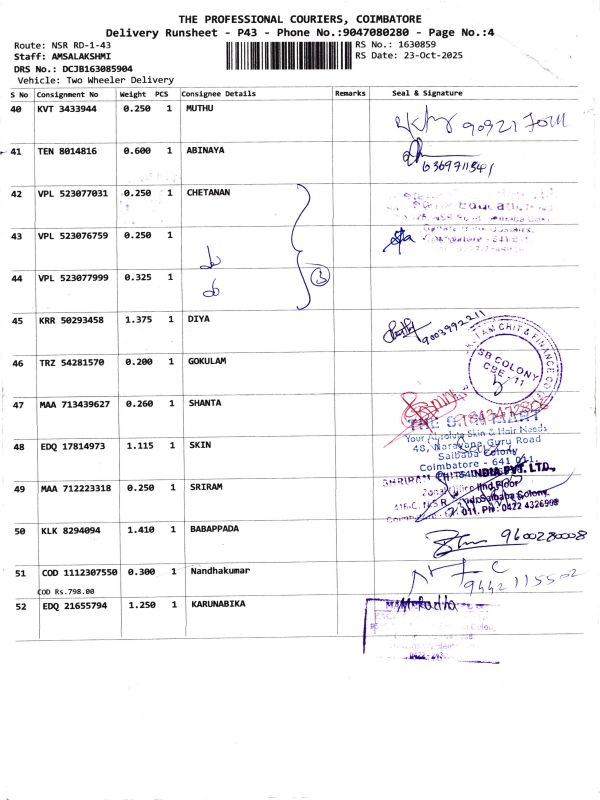 THE PROFESSIONAL COURIERS, COIMBATORE
Delivery Runsheet - P43 - Phone No.:9047080280 - Page No.:4
Route: NSR RD-1-43 RS No.: 1630859
Staff: AMSALAKSHMI RS Date: 23-Oct-2025
DRS No.: DCJB163085904
Vehicle: Two Wheeler Delivery
S No Consignment No Weight PCS Consignee Details Remarks Seal & Signature
40 KVT 3433944 0.250 1 MUTHU
41 TEN 8014816 0.600 1 ABINAYA
42 VPL 523077031 0.250 1 CHETANAN
43 VPL 523076759 0.250 1
44 VPL 523077999 0.325 1
3
45 KRR 50293458 1.375 1 DIYA
9003992211
46 TRZ 54281570 0.200 1 GOKULAM
CHIT & FINANCE
SB COLONY
CBE - 11
47 MAA 713439627 0.260 1 SHANTA
48 EDQ 17814973 1.115 1 SKIN
Your Absolute Skin & Hair Needs
48, Narayana Guru Road
Saibaba Colony
Coimbatore - 641 011.
49 MAA 712223318 0.250 1 SRIRAM
INDIA PVT. LTD.,
Zonal Office IInd Floor
Saibaba Colony.
011. PH: 0422 4326998
50 KLK 8294094 1.410 1 BABAPPADA
9600280008
51 COD 1112307550 0.300 1 Nandhakumar
COD Rs.798.00
9442115502
52 EDQ 21655794 1.250 1 KARUNABIKA